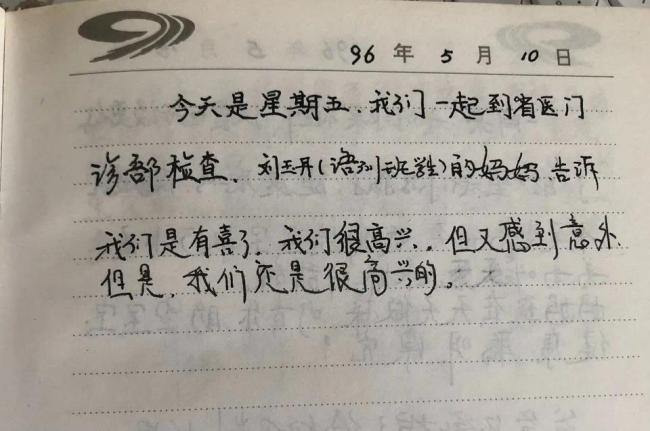 96 年 5 月 10 日
今天是星期五.我们一起到省医门
诊部检查.刘玉丹(语训班学生)的妈妈告诉
我们是有喜了.我们很高兴.但又感到意外
但是.我们还是很高兴的。